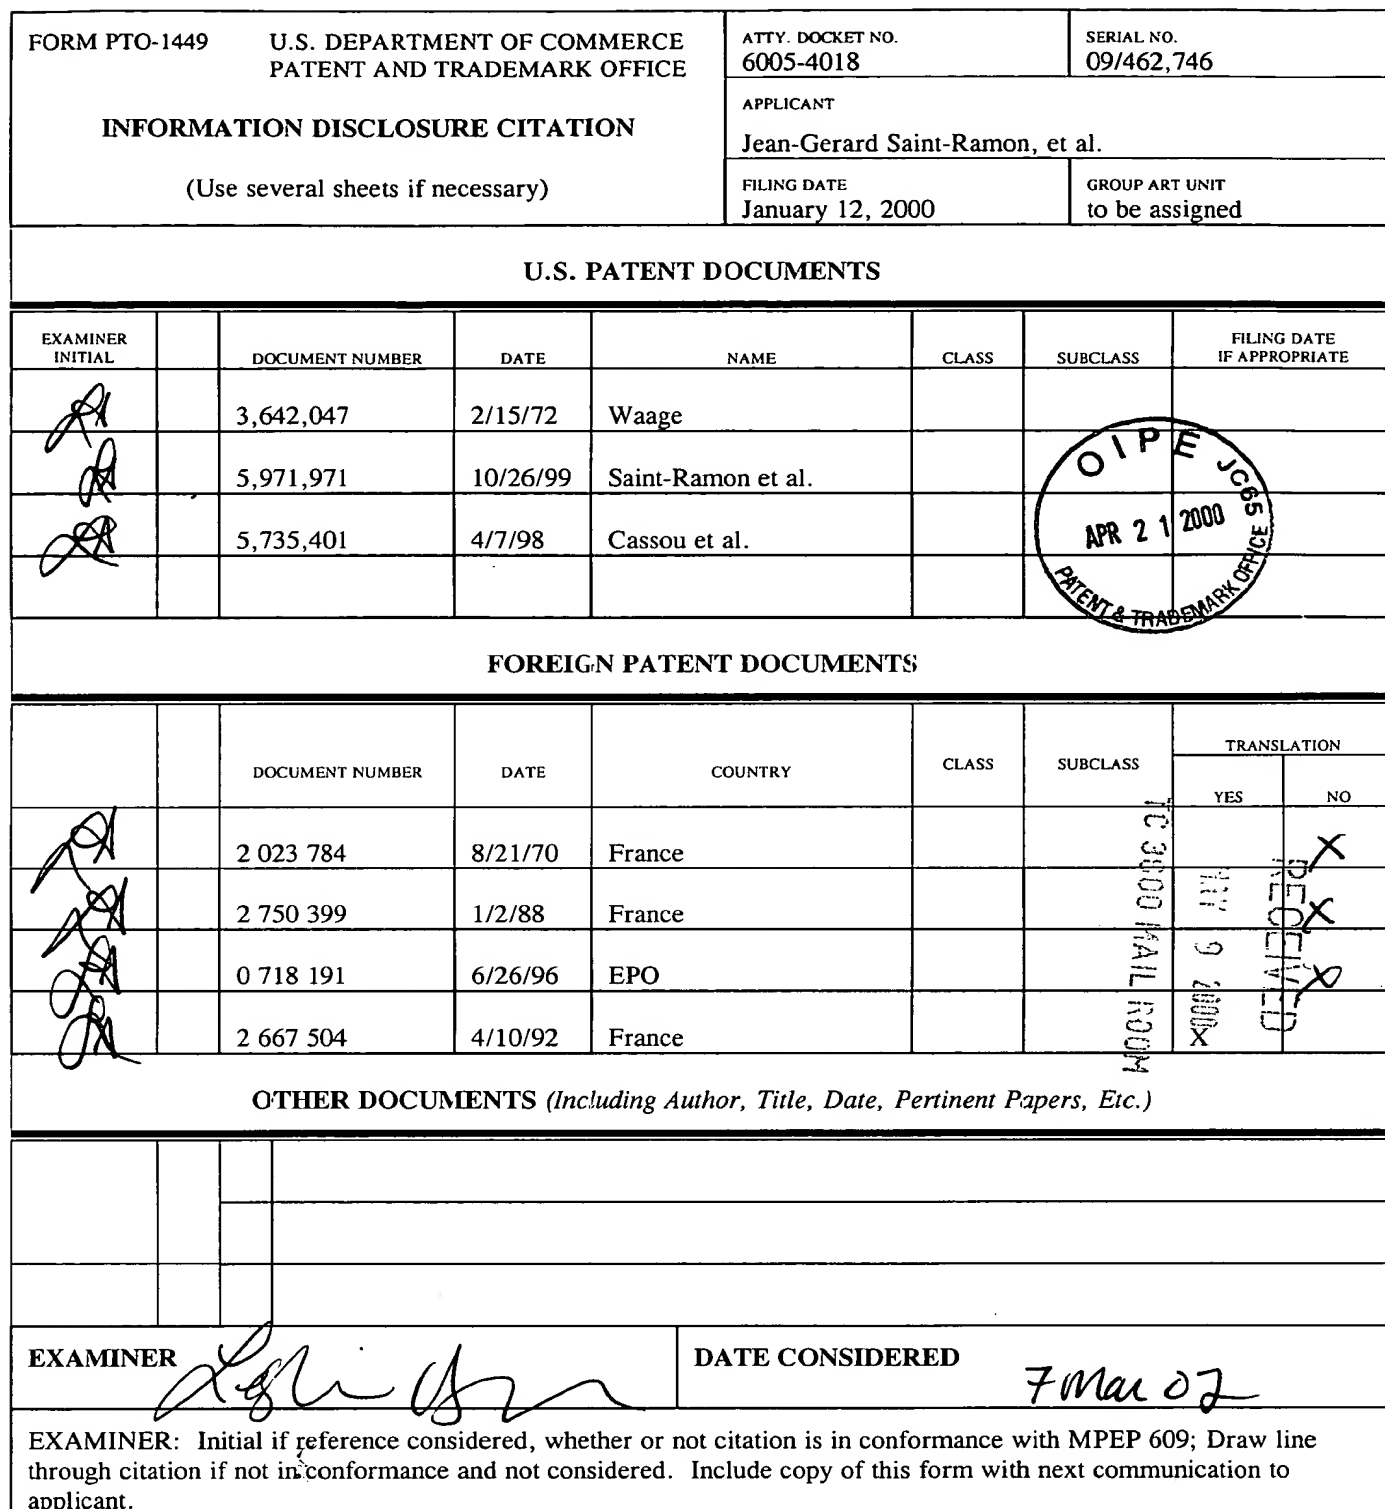 FORM PTO-1449 U.S. DEPARTMENT OF COMMERCE
PATENT AND TRADEMARK OFFICE
INFORMATION DISCLOSURE CITATION
(Use several sheets if necessary)
ATTY. DOCKET NO.
6005-4018
SERIAL NO.
09/462,746
APPLICANT
Jean-Gerard Saint-Ramon, et al.
FILING DATE
January 12, 2000
GROUP ART UNIT
to be assigned
U.S. PATENT DOCUMENTS
EXAMINER
INITIAL
DOCUMENT NUMBER DATE NAME CLASS SUBCLASS
FILING DATE
IF APPROPRIATE
3,642,047 2/15/72 Waage
5,971,971 10/26/99 Saint-Ramon et al.
5,735,401 4/7/98 Cassou et al.
OIPE JC65
APR 21 2000
PATENT & TRADEMARK OFFICE
FOREIGN PATENT DOCUMENTS
DOCUMENT NUMBER DATE COUNTRY CLASS SUBCLASS
TRANSLATION
YES NO
2 023 784 8/21/70 France X
2 750 399 1/2/88 France X
0 718 191 6/26/96 EPO X
2 667 504 4/10/92 France X
RECEIVED
9 2000
MAIL ROOM
OTHER DOCUMENTS (Including Author, Title, Date, Pertinent Papers, Etc.)
EXAMINER
DATE CONSIDERED 7 Mar 02
EXAMINER: Initial if reference considered, whether or not citation is in conformance with MPEP 609; Draw line
through citation if not in conformance and not considered. Include copy of this form with next communication to
applicant.